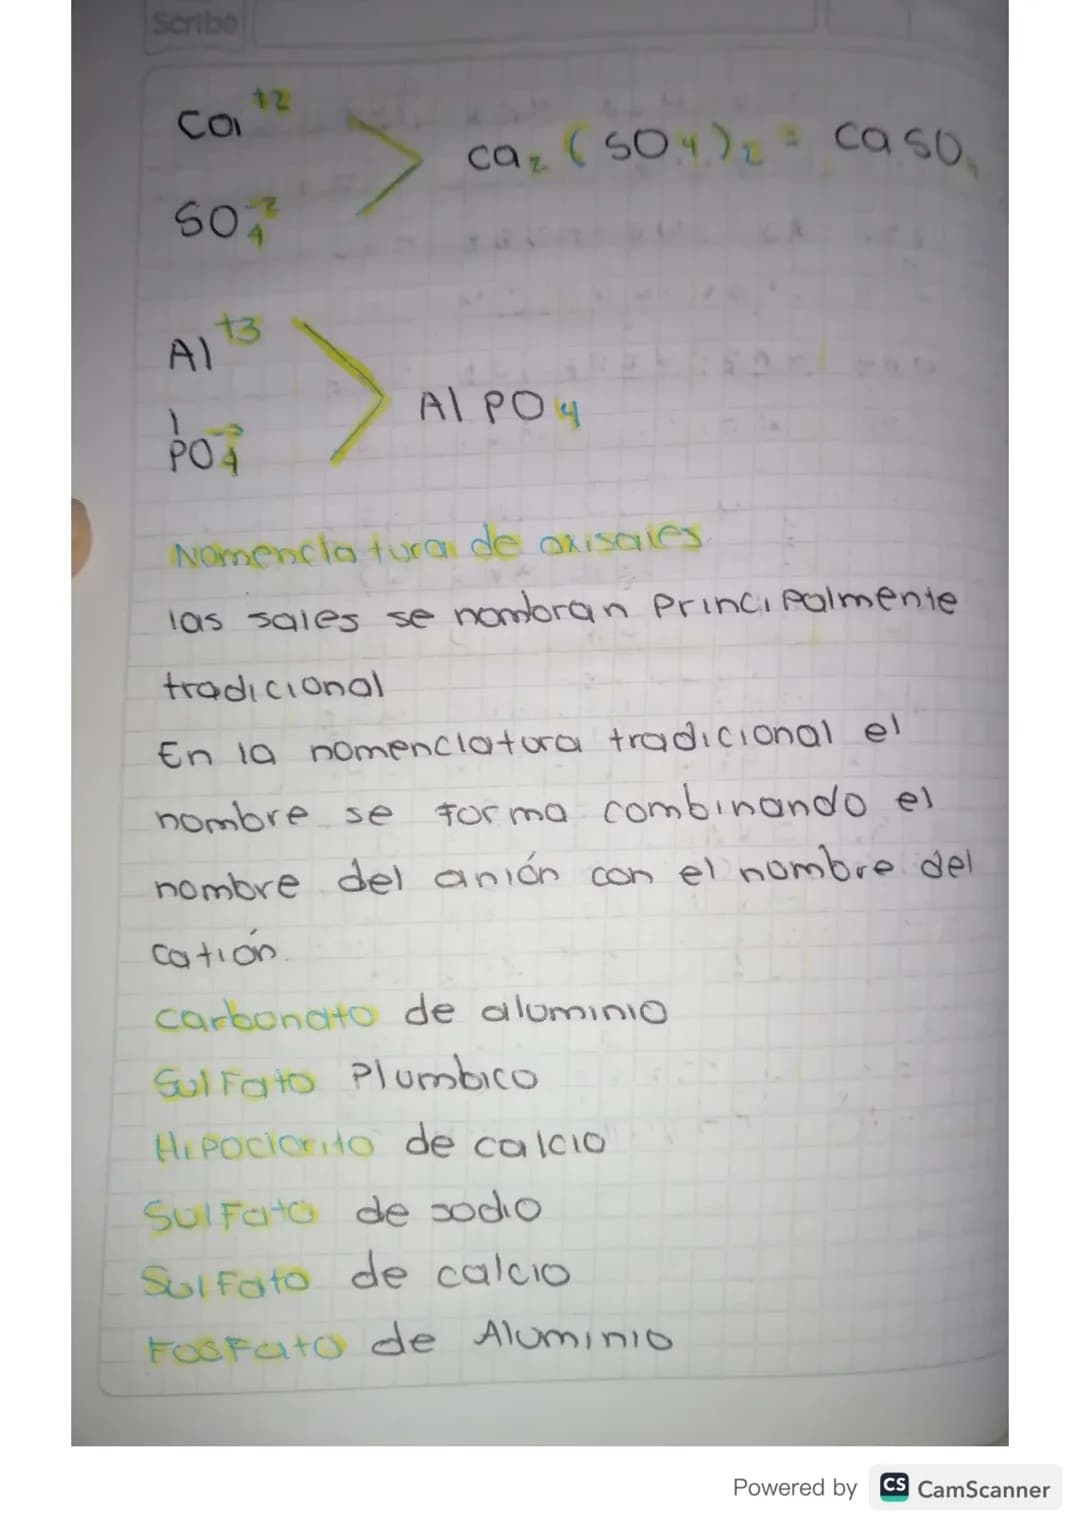 Scribe
Ca +2
ca2 (SO4)2 = caSO4
SO4 -2
Al +3
Al PO4
PO4 -3
Nomenclatura de oxisales
las sales se nombran Principalmente
tradicional
En la nomenclatura tradicional el
nombre se forma combinando el
nombre del anión con el nombre del
catión.
carbonato de aluminio
Sulfato Plumbico
Hipoclorito de calcio
Sulfato de sodio
Sulfato de calcio
Fosfato de Aluminio
Powered by CS CamScanner